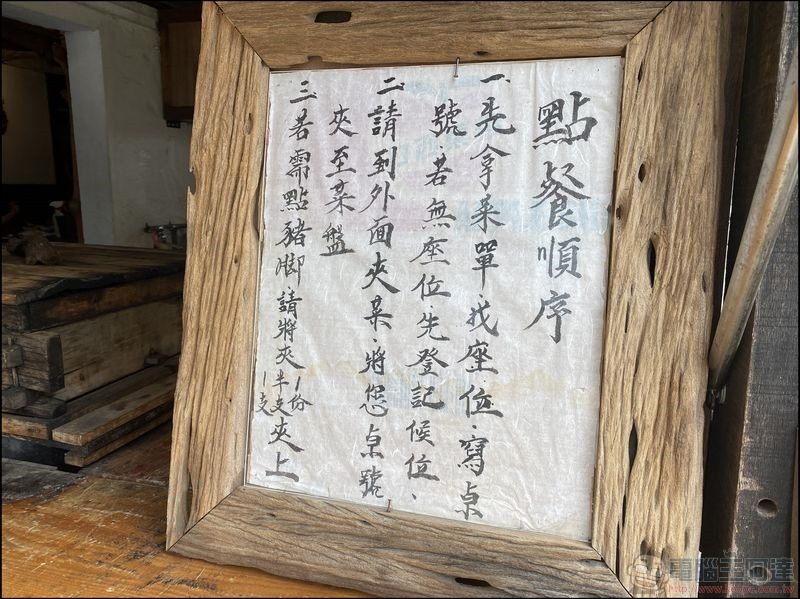 點餐順序
一、先拿菜單、找座位、寫桌
號、若無座位、先登記候位、
二、請到外面夾菜、將您桌號
夾至菜盤
三、若需點豬腳、請將夾半支、1份、1支夾上
電腦王阿達
http://www.kocpc.com.tw